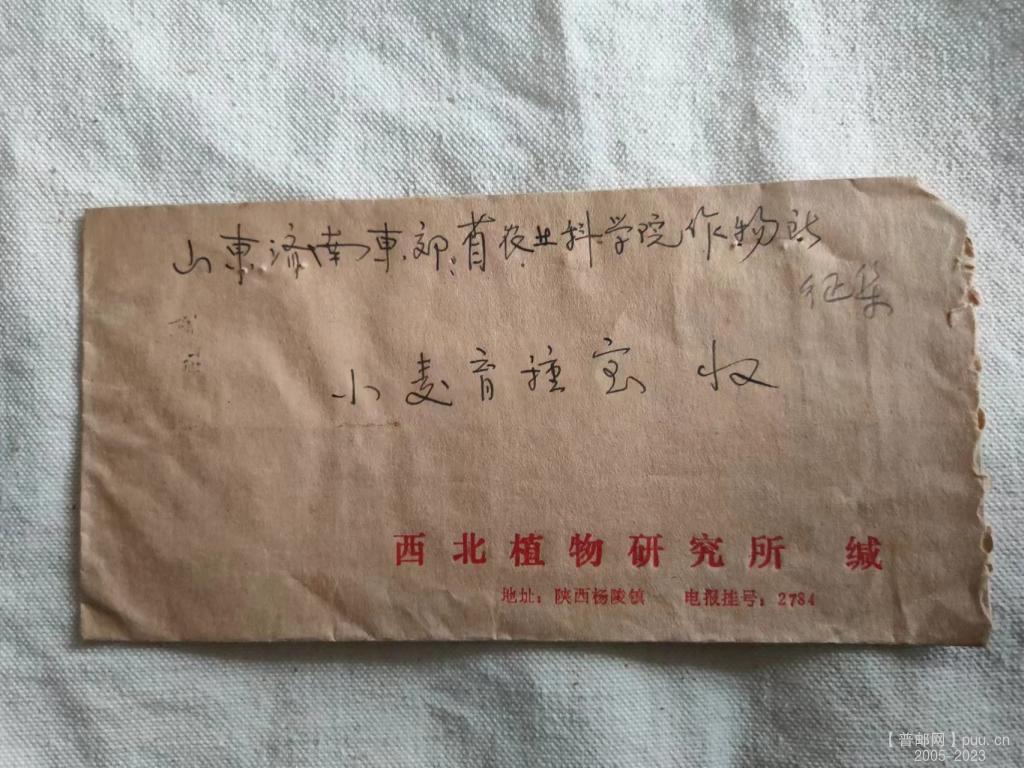 山東济南東郊省农业科学院作物所
征集
小麦育種室 收
西北植物研究所 缄
地址：陕西杨陵镇 电报挂号：2784
【普邮网】puu.cn
2005-2023